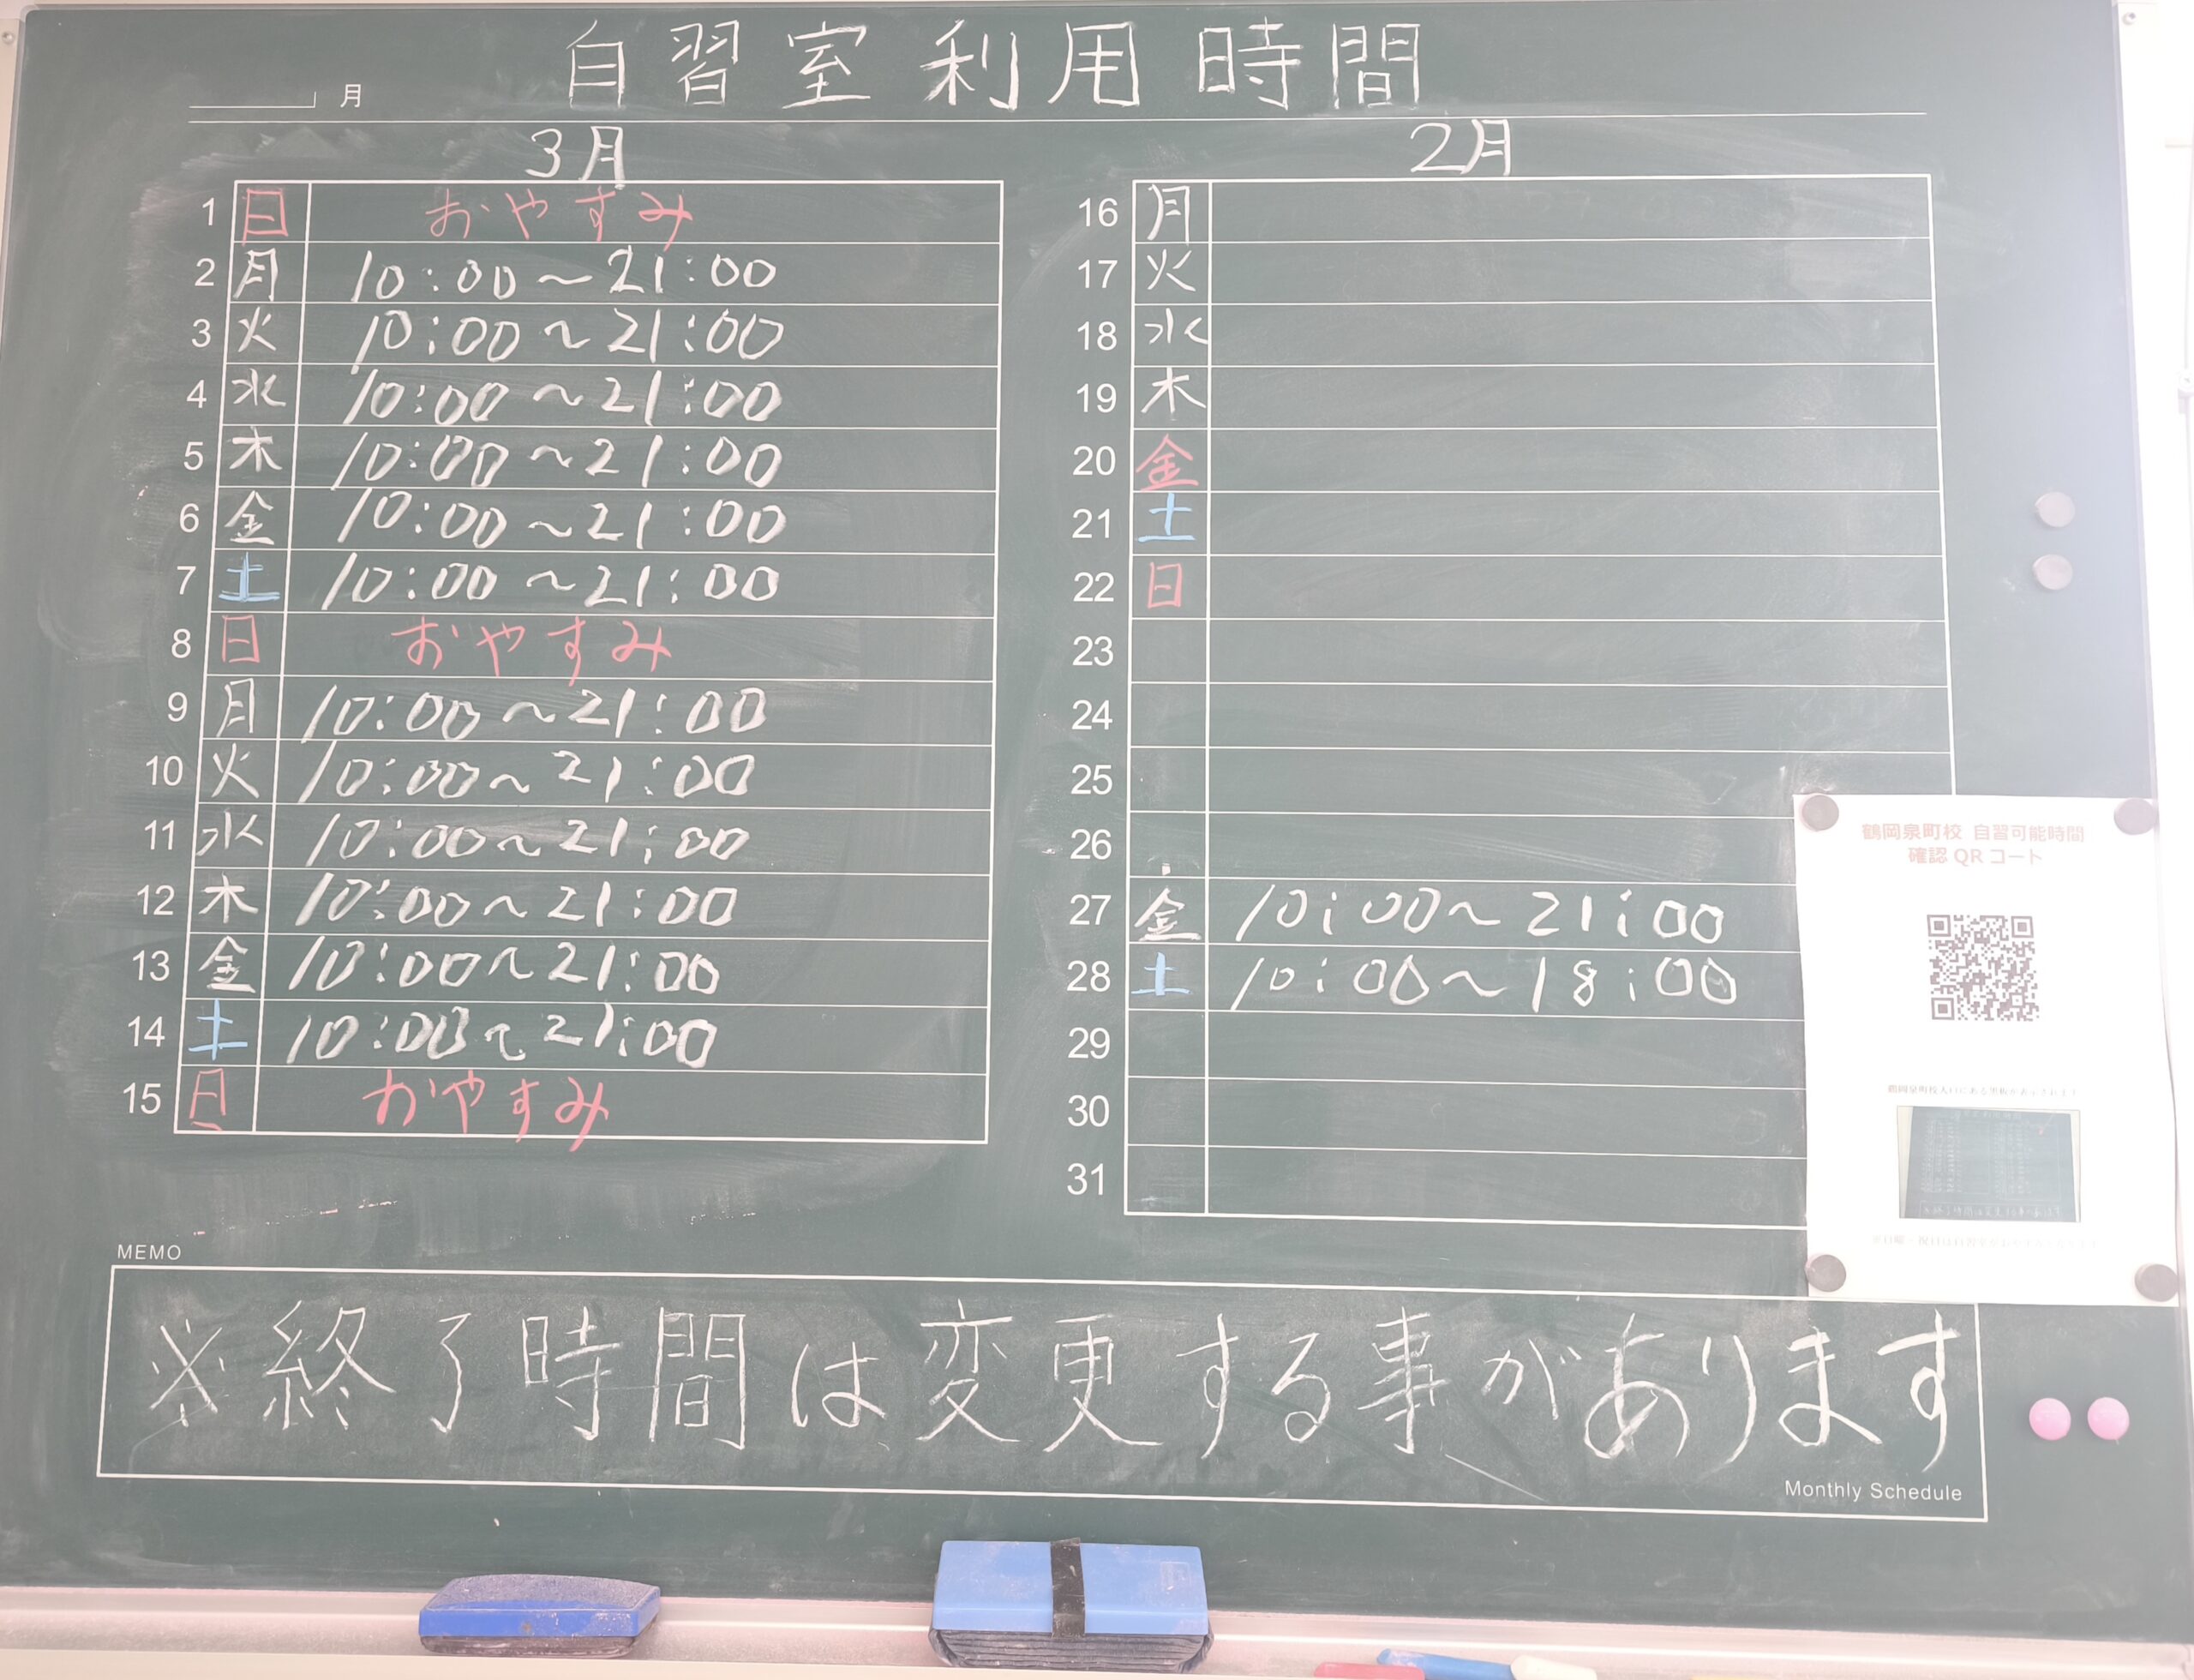 自習室利用時間
月
3月
1 日 おやすみ
2 月 10:00～21:00
3 火 10:00～21:00
4 水 10:00～21:00
5 木 10:00～21:00
6 金 10:00～21:00
7 土 10:00～21:00
8 日 おやすみ
9 月 10:00～21:00
10 火 10:00～21:00
11 水 10:00～21:00
12 木 10:00～21:00
13 金 10:00～21:00
14 土 10:00～21:00
15 日 おやすみ
2月
16 月
17 火
18 水
19 木
20 金
21 土
22 日
23
24
25
26
27 金 10:00～21:00
28 土 10:00～18:00
29
30
31
鶴岡泉町校 自習可能時間
確認QRコート
鶴岡泉町校入口にある黒板が表示されます
MEMO
※終了時間は変更する事があります
Monthly Schedule